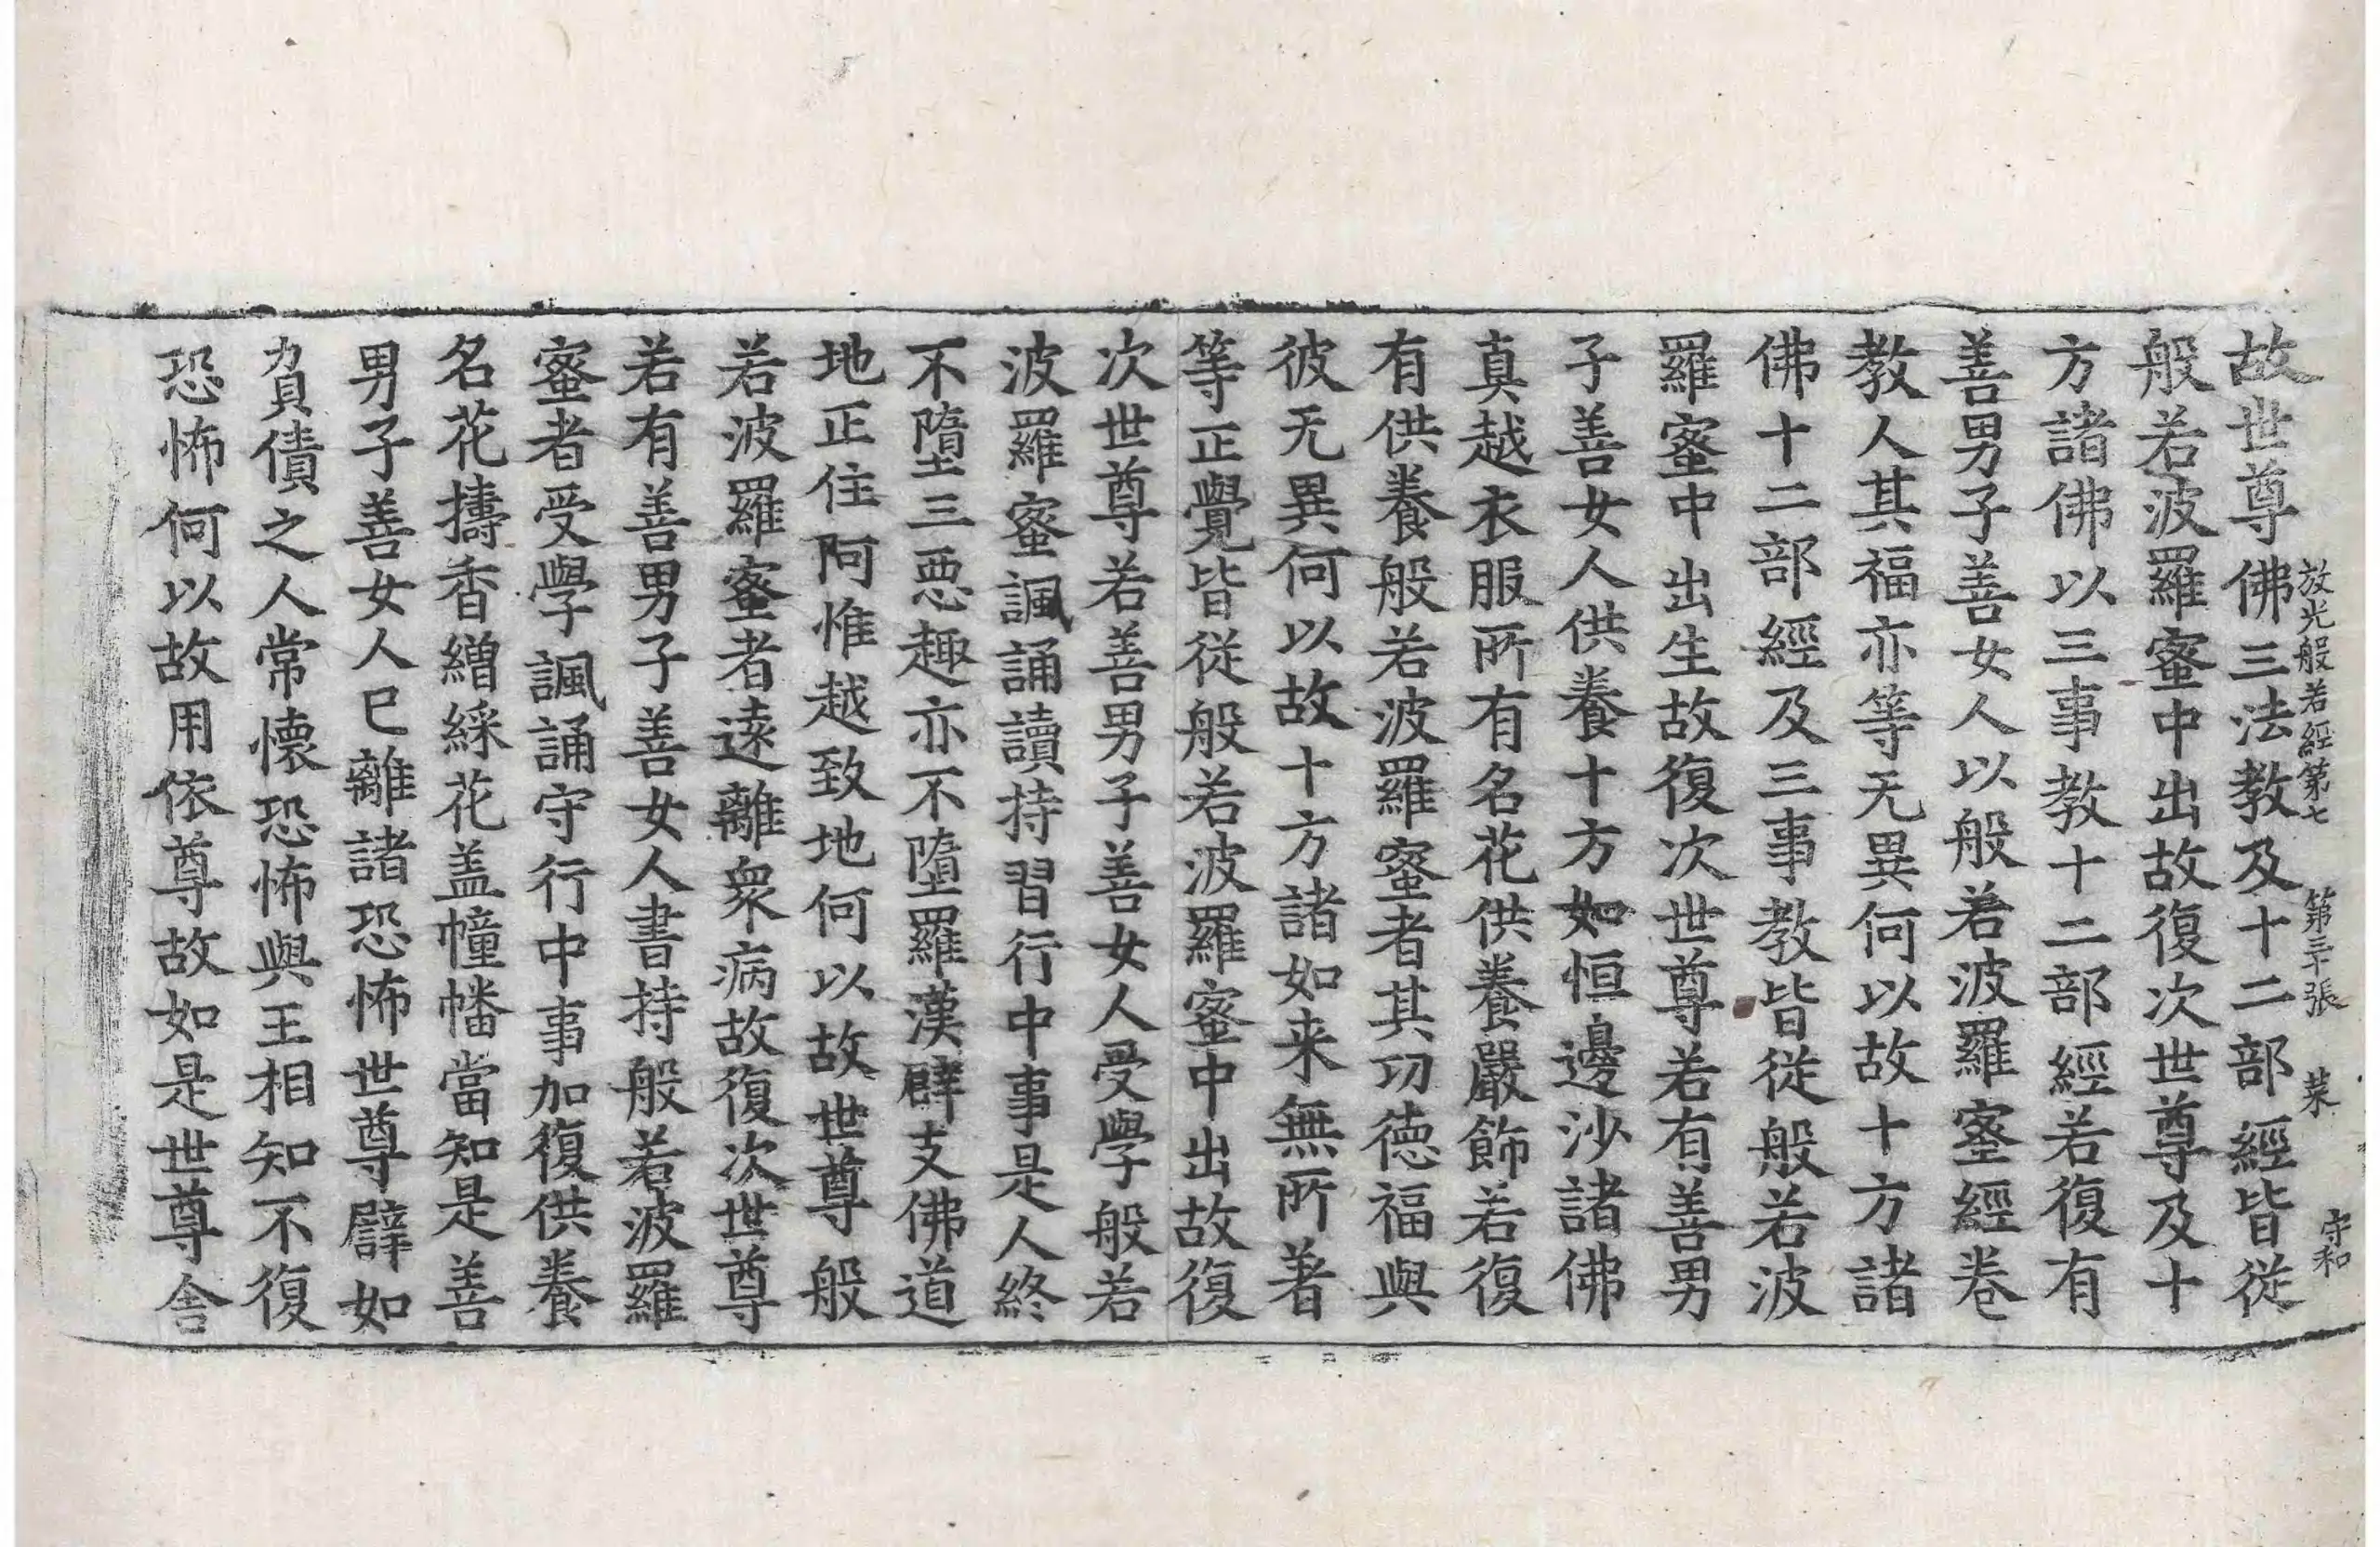 放光般若經第七 第三十張 菜 守和
故世尊佛三法教及十二部經皆從
般若波羅蜜中出故復次世尊及十
方諸佛以三事教十二部經若復有
善男子善女人以般若波羅蜜經卷
教人其福亦等无異何以故十方諸
佛十二部經及三事教皆從般若波
羅蜜中出生故復次世尊若有善男
子善女人供養十方如恒邊沙諸佛
真越衣服所有名花供養嚴飾若復
有供養般若波羅蜜者其功德福與
彼无異何以故十方諸如来無所著
等正覺皆從般若波羅蜜中出故復
次世尊若善男子善女人受學般若
波羅蜜諷誦讀持習行中事是人終
不墮三惡趣亦不墮羅漢辟支佛道
地正住阿惟越致地何以故世尊般
若波羅蜜者遠離衆病故復次世尊
若有善男子善女人書持般若波羅
蜜者受學諷誦守行中事加復供養
名花擣香繒綵花盖幢幡當知是善
男子善女人已離諸恐怖世尊譬如
負債之人常懷恐怖與王相知不復
恐怖何以故用依尊故如是世尊舍